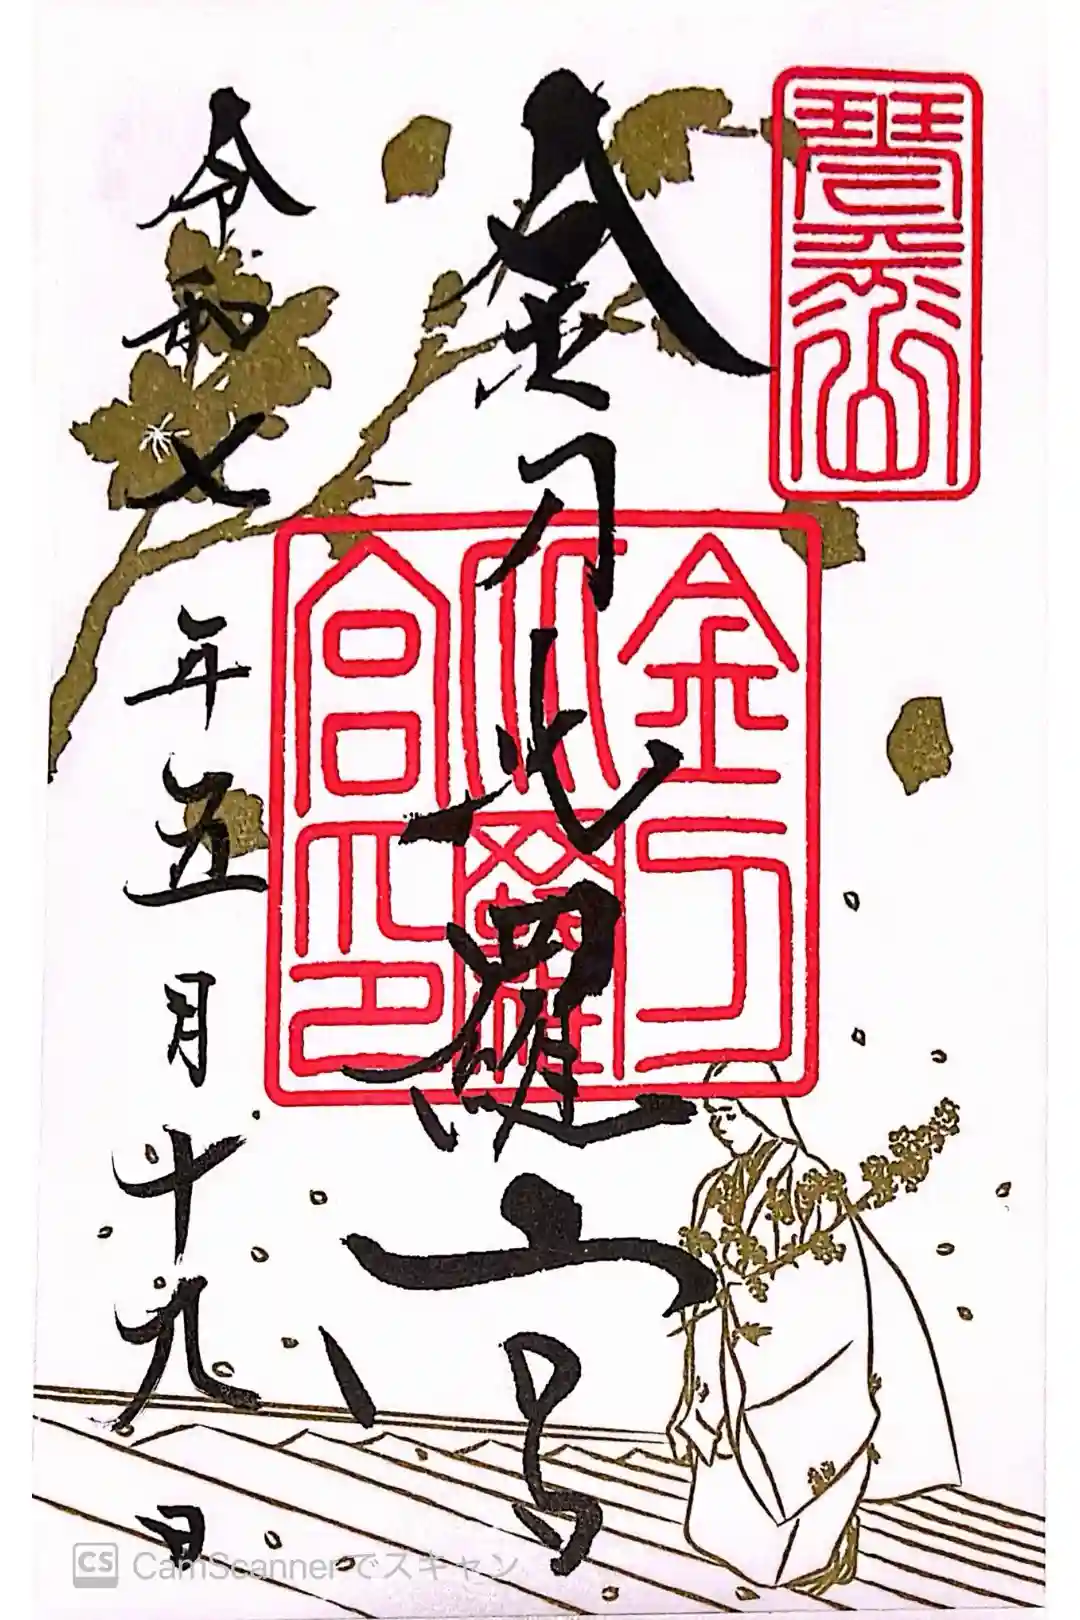 琴平山
金刀比羅宮
金刀
比羅
宮印
令和七年五月十九日
CS CamScannerでスキャン